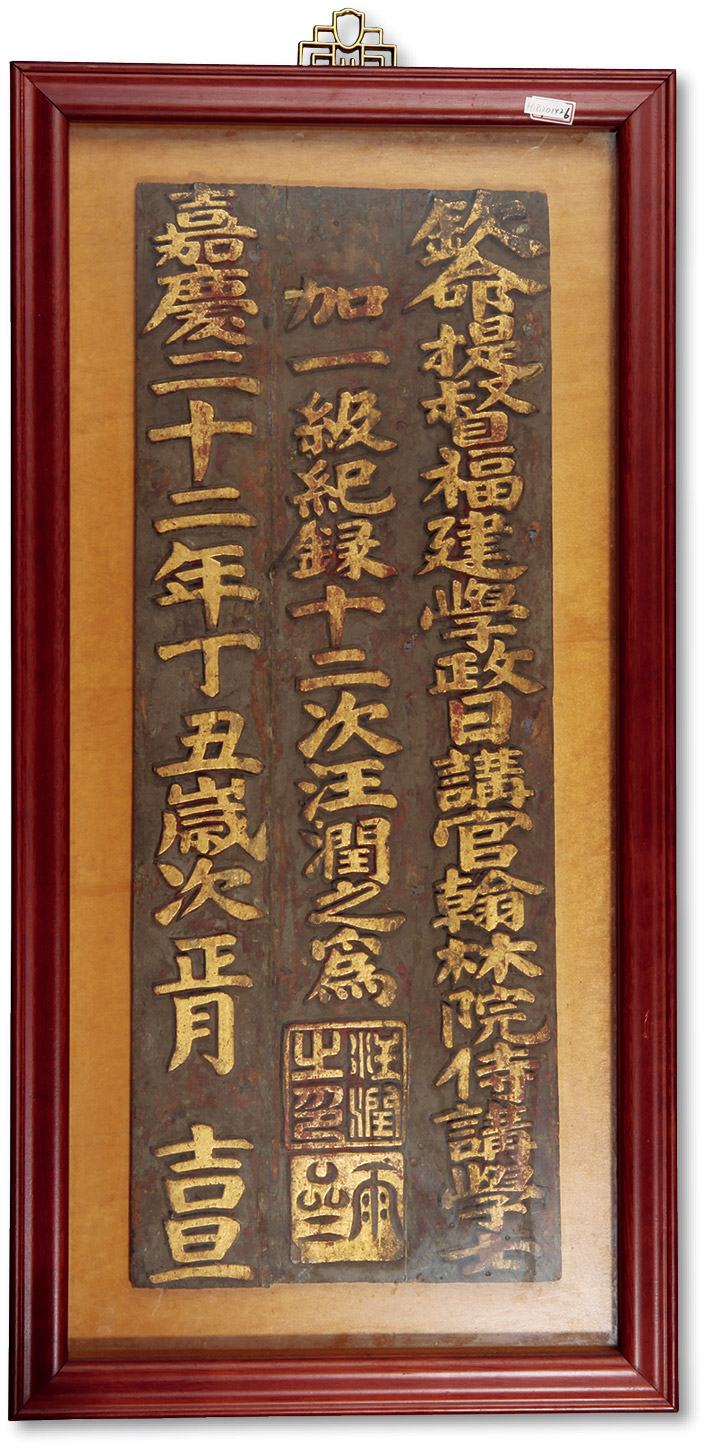 欽命提督福建學政日講官翰林院侍講學士
加一級紀録十二次汪潤之爲
汪潤之印
嘉慶二十二年丁丑歲次正月 吉旦